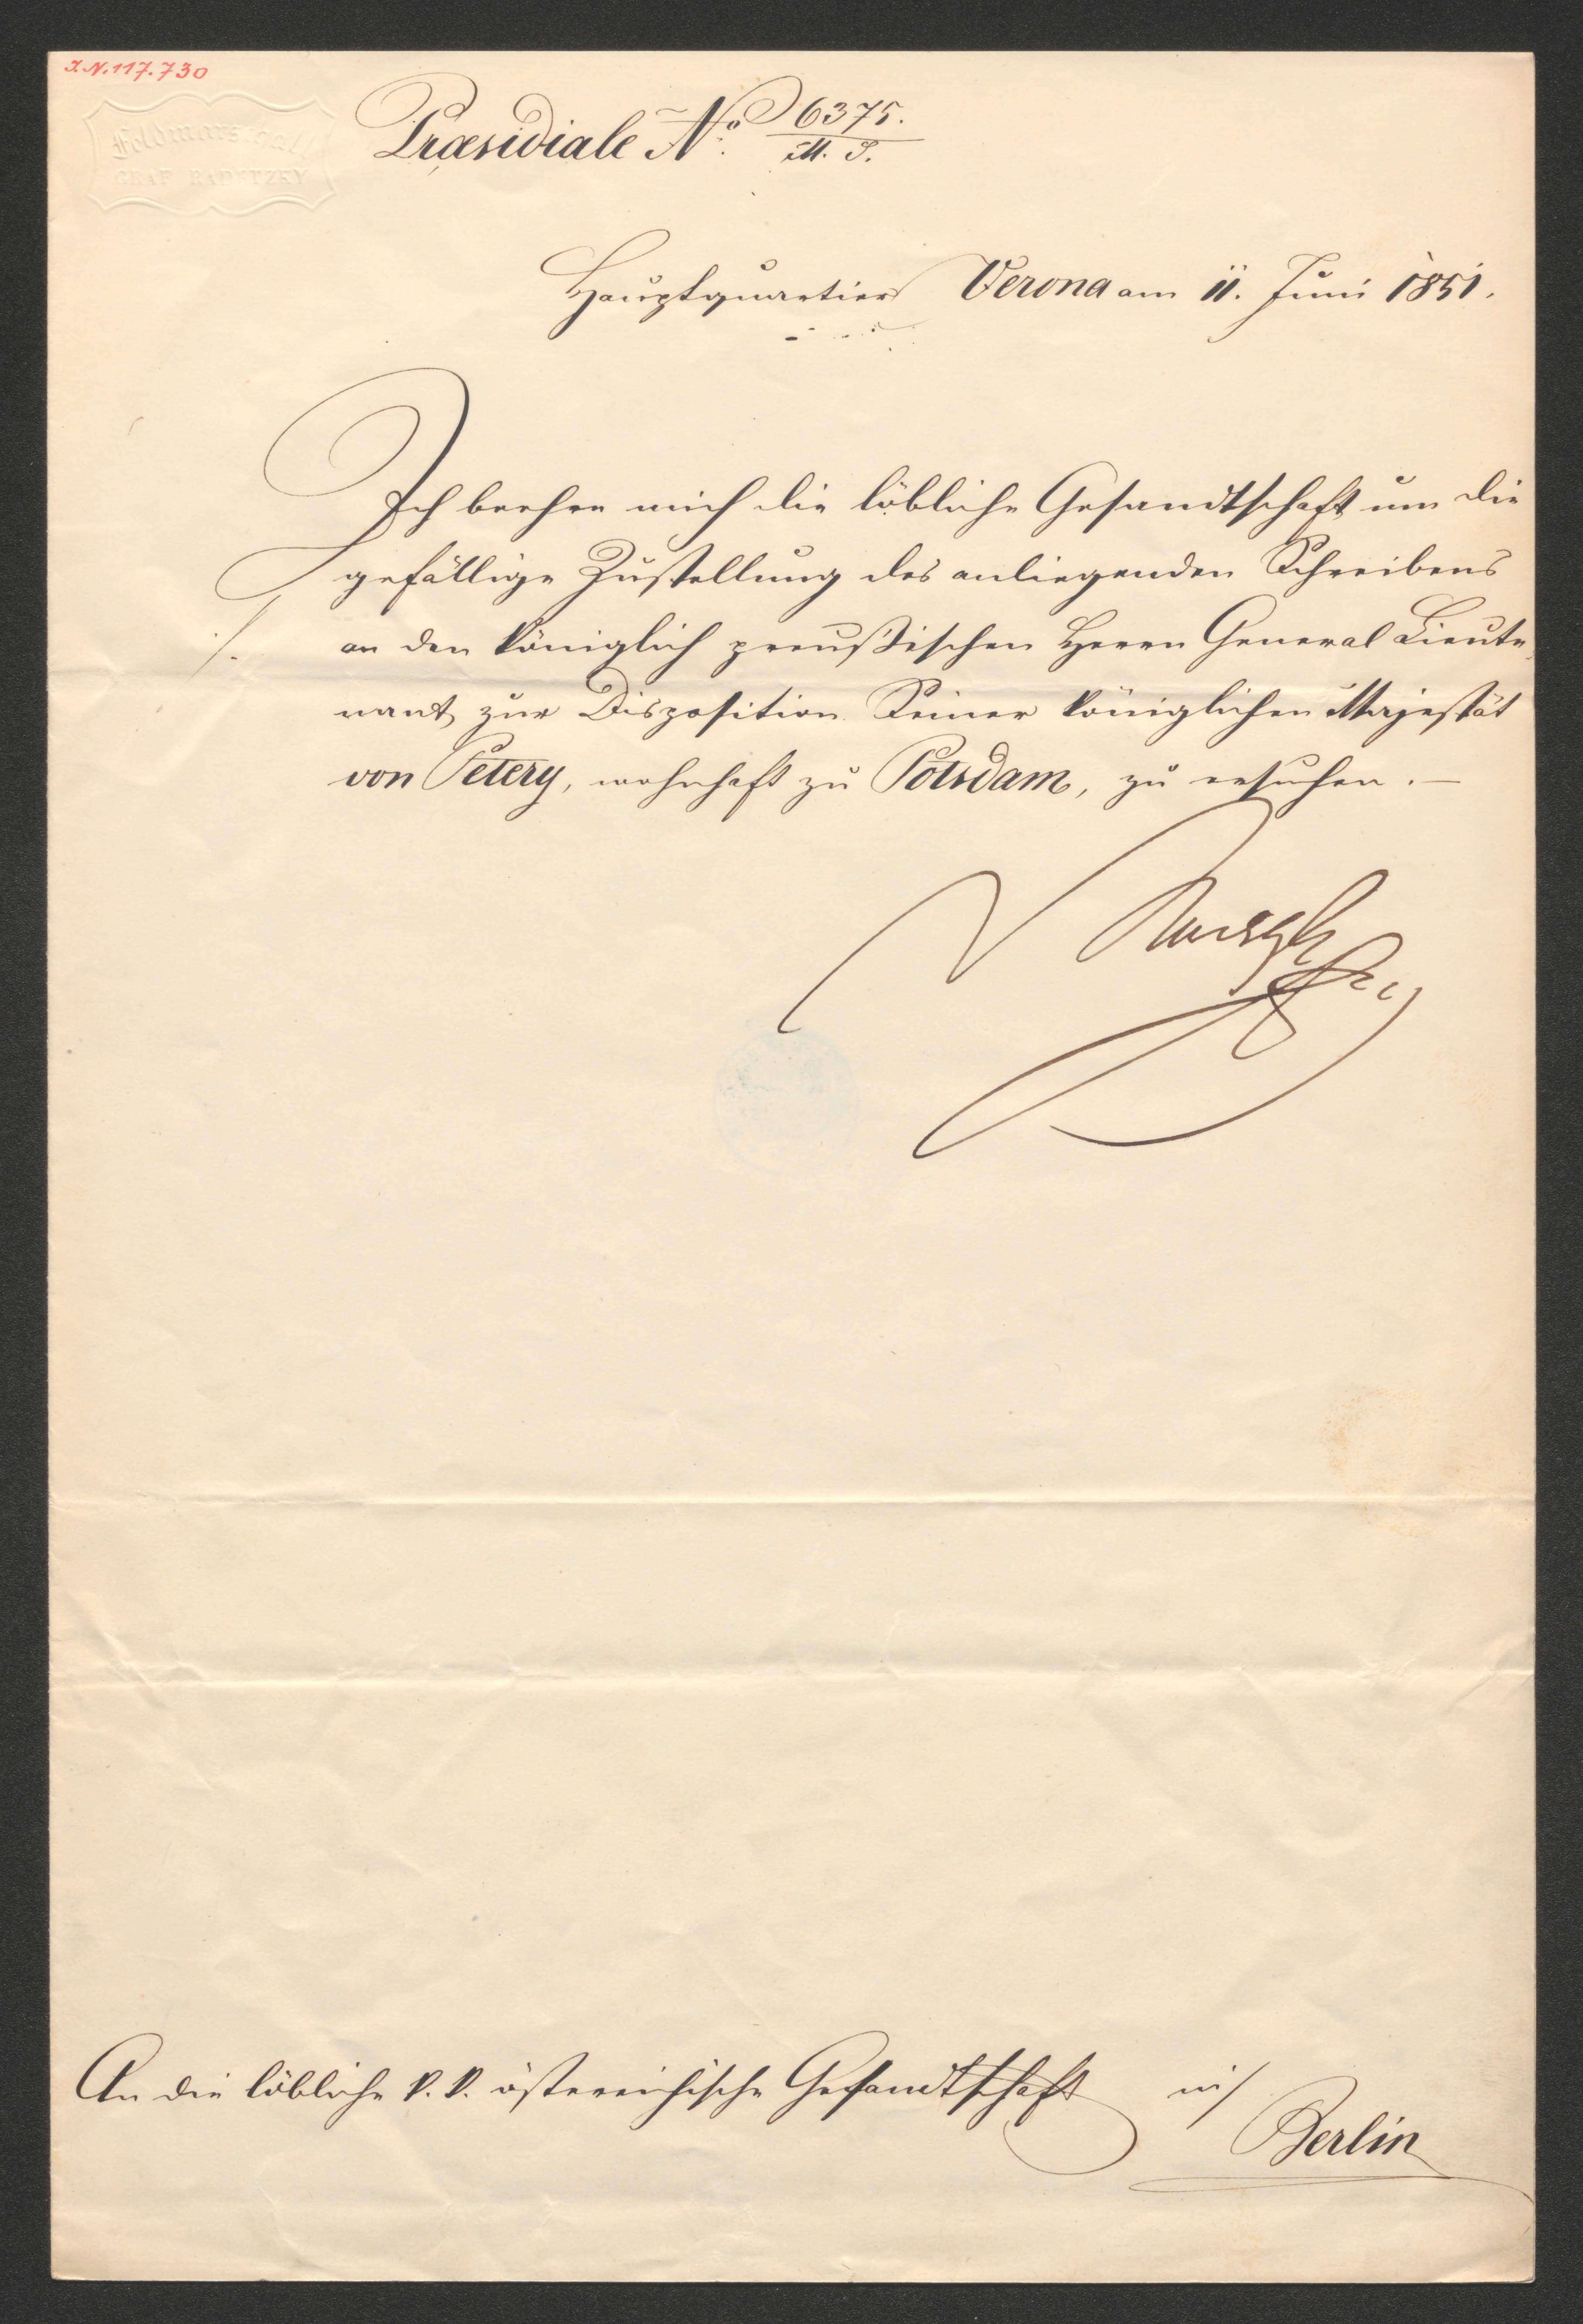 I.N. 117.730
Feldmarschall
GRAF RADETZKY
Præsidiale No. 6375.
M. P.
Hauptquartier Verona am 11. Juni 1851.
Ich beehre mich die löbliche Gesandtschaft um die
gefällige Zustellung des anliegenden Schreibens
./. an den königlich preußischen Herrn General Lieute-
nant zur Disposition Seiner königlichen Majestät
von Petery, wohnhaft zu Potsdam, zu ersuchen. —
An die löbliche k. k. österreichische Gesandtschaft in
Berlin